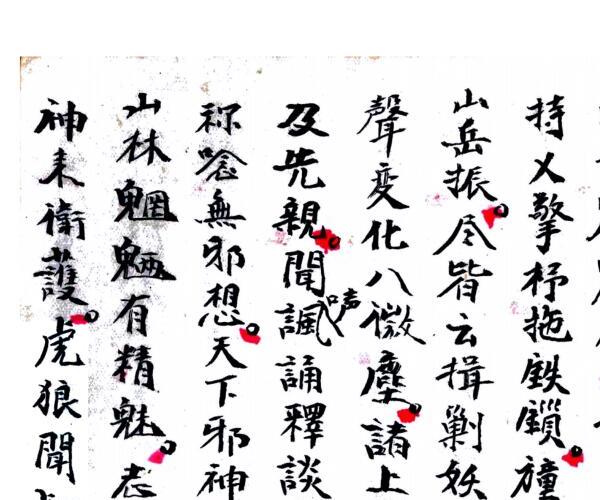 持乂擎杼拖鉄鎖。旜
山岳振。尽皆云揖剿妖
聲变化八微塵。諸上
及先親。聞諷誦釋談
唪
祢唸無邪想。天下邪神
山林魍魎有精魅。志
神来衛護。虎狼聞